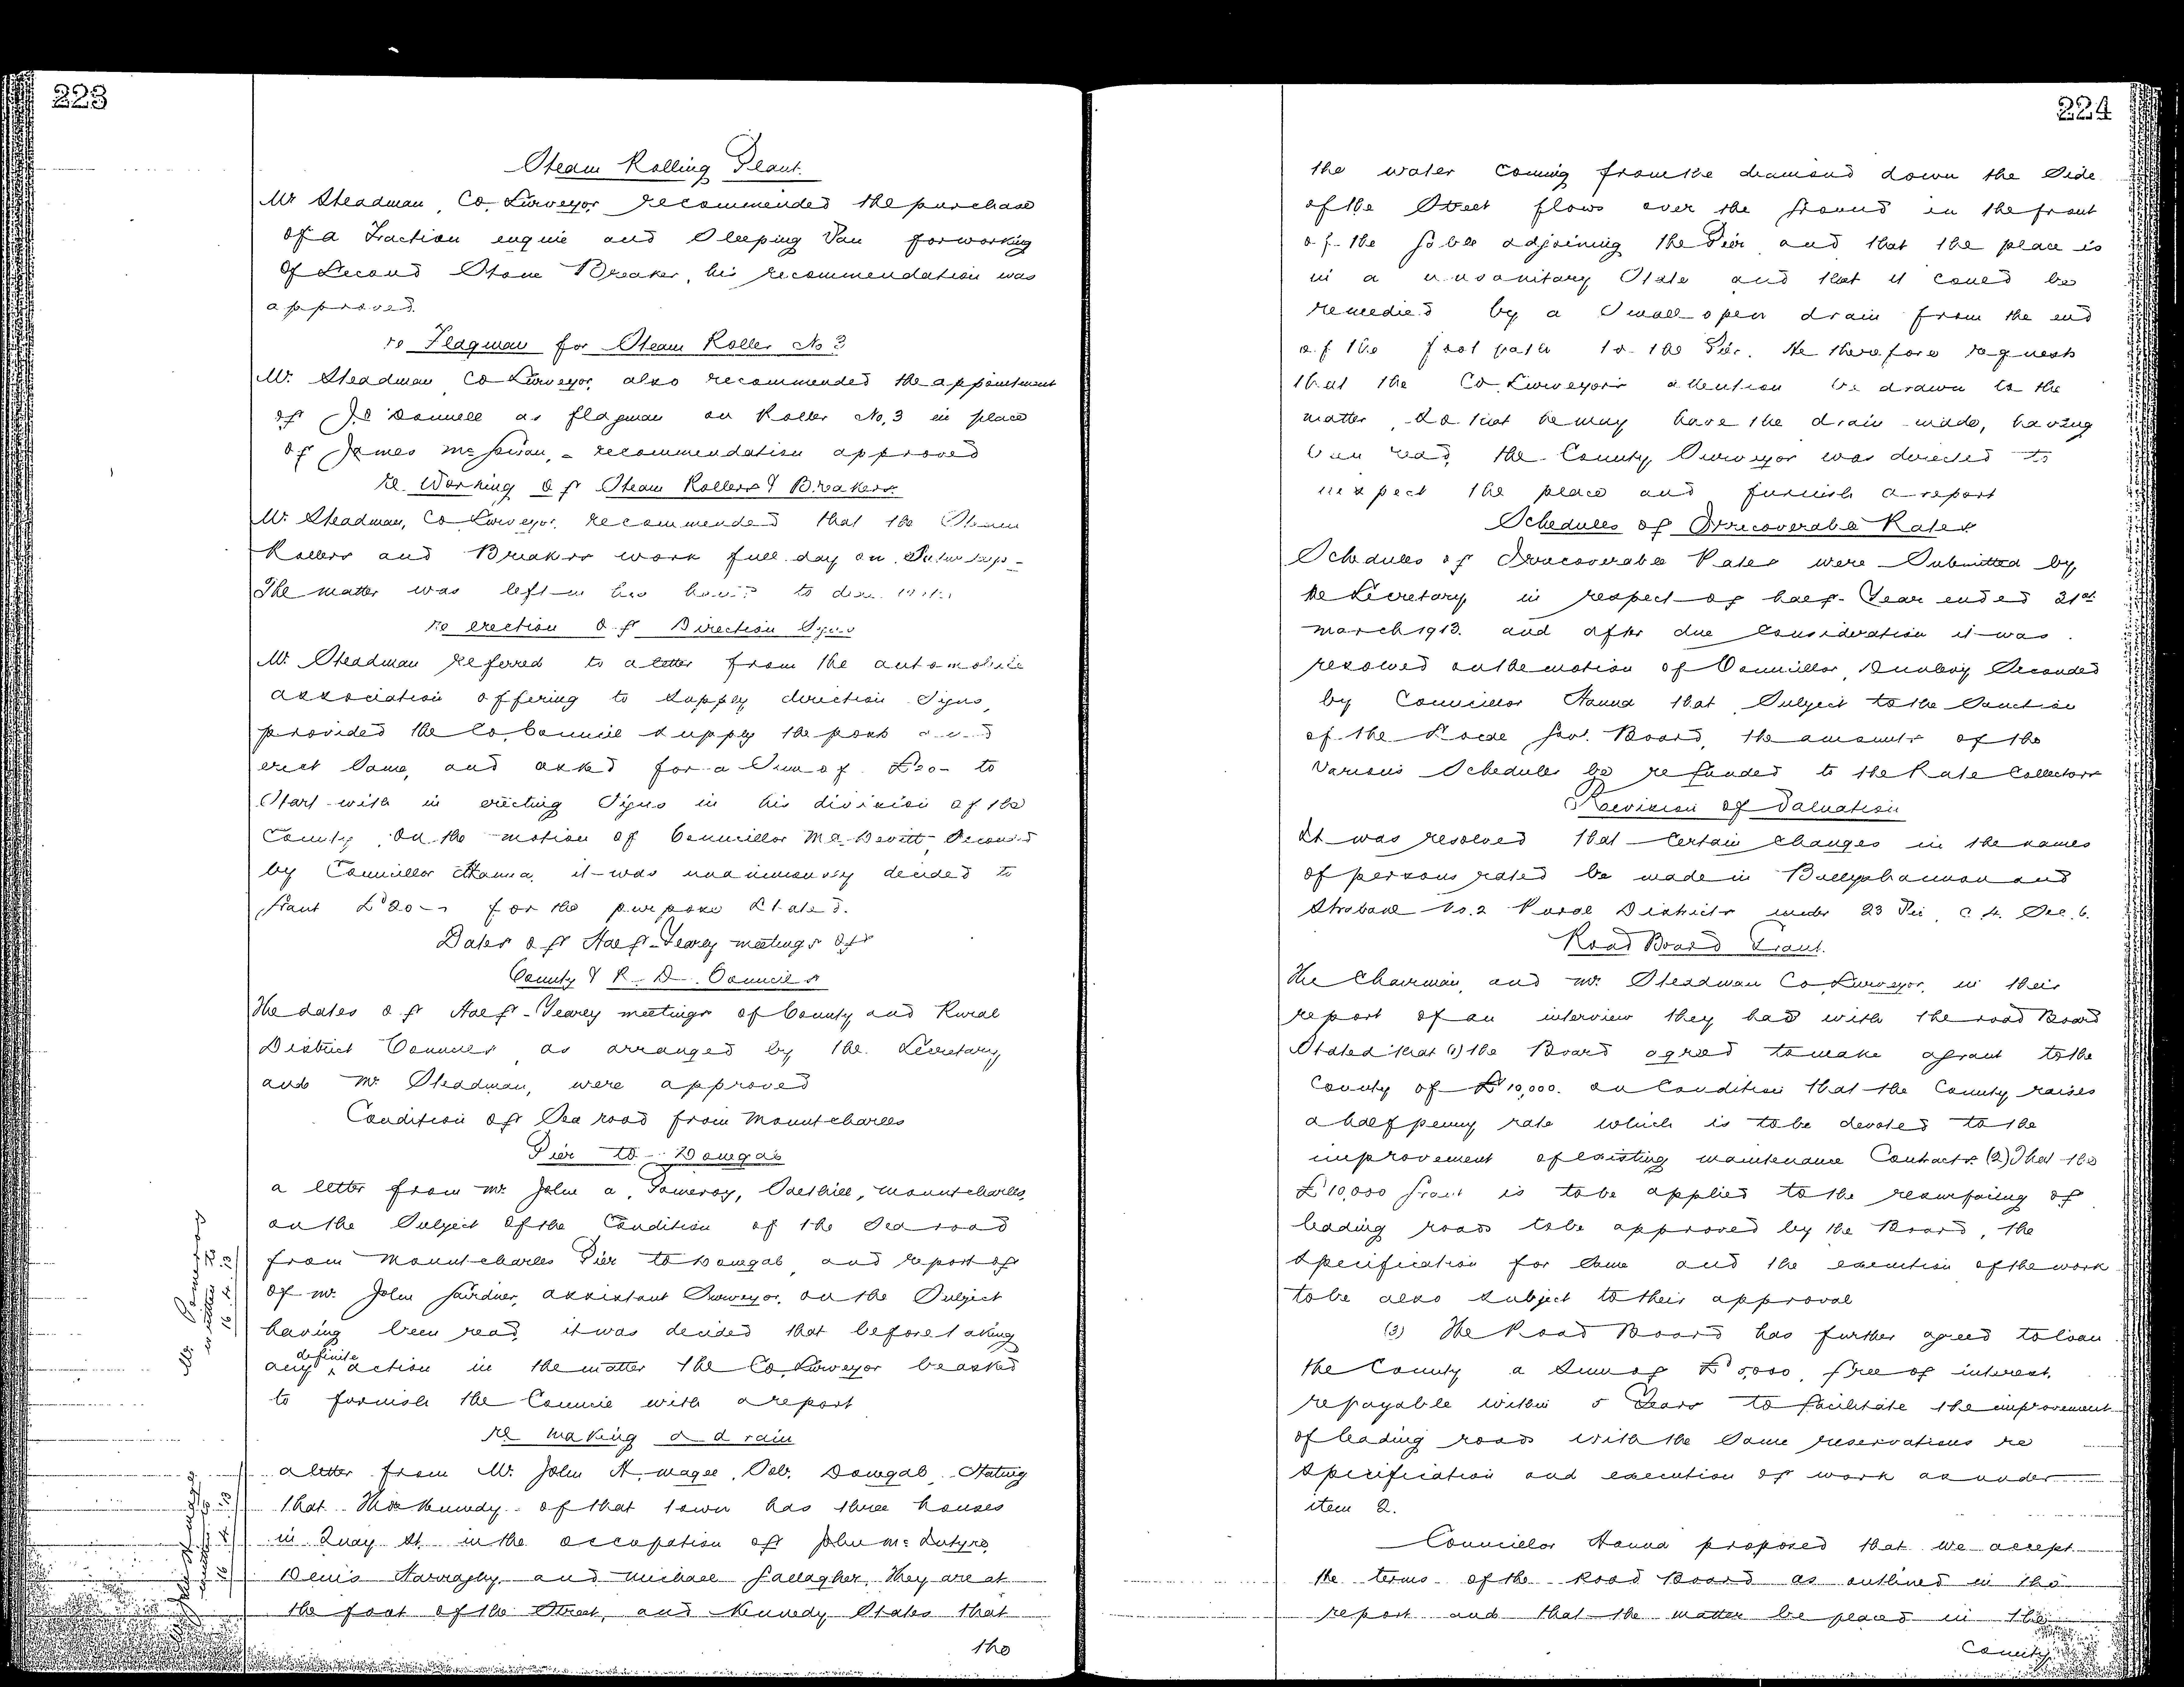 223
Steam Rolling Plant.
Mr Steadman, Co. Surveyor recommended the purchase
of a Traction engine and Sleeping Van for working
of Second Stone Breaker, his recommendation was
approved.
re Flagman for Steam Roller No 3
Mr. Steadman Co Surveyor, also recommended the appointment
of Donnell as flagman on Roller No. 3 in place
of James - recommendation approved
re Working of Steam Rollers & Breakers.
Mr. Steadman, Co Surveyor, recommended that the Steam
Rollers and Breakers work full day on Saturdays -
The matter was left in his hands to deal with
re erection of Direction Signs
Mr. Steadman referred to a letter from the automobile
association offering to supply direction Signs,
provided the Co. Council supply the posts and
erect Same, and asked for a Sum of £20- to
Start with in erecting Signs in his division of the
County. On the motion of Councillor McDevitt, Seconded
by Councillor Hanna, it was unanimously decided to
grant £20-- for the purpose stated.
Dates of Half-Yearly meetings of
County & R. D. Councils
The dates of Half-Yearly meetings of County and Rural
District Councils as arranged by the Secretary
and Mr Steadman, were approved
Condition of Sea road from Mountcharles
Pier to Donegal
a letter from Mr. John a. Pomeroy, Salthill, Mountcharles,
on the Subject of the Condition of the Sea road
from Mountcharles Pier to Donegal, and report of
of Mr. John Gairdner, assistant Surveyor, on the Subject
having been read, it was decided that before taking
any definite action in the matter the Co. Surveyor be asked
to furnish the Council with a report
re making a drain
a letter from Mr. John A. Magee, Solr. Donegal, Stating
that Kennedy of that town has three houses
in Quay St. in the occupation of John McIntyre,
Denis Harraghy, and Michael Gallagher. They are at
the foot of the Street, and Kennedy States that
the
Mr. Pomeroy's
letter
16/4/13
16/4/13
224
the water coming from the diamond down the Side
of the Street flows over the ground in the front
of the adjoining the Pier and that the place is
in a unsanitary State and that it could be
remedied by a Small open drain from the end
of the foot path to the Pier. He therefore requests
that the Co. Surveyor's attention be drawn to the
matter, so that he may have the drain made, having
been read, the County Surveyor was directed to
inspect the place and furnish a report
Schedules of Irrecoverable Rates
Schedules of Irrecoverable Rates were Submitted by
the Secretary in respect of half-Year ended 31st
March 1913. and after due Consideration it was
resolved on the motion of Councillor Dunlevy Seconded
by Councillor Hanna that Subject to the Sanction
of the Local Govt. Board, the amounts of the
Various Schedules be refunded to the Rate Collectors
Revision of Valuation
It was resolved that Certain Changes in the names
of persons rated be made in Ballyshannon and
Strabane No. 2 Rural Districts under 23 Vic. c 4. Sec. 6.
Road Board Grant.
The Chairman, and Mr. Steadman Co Surveyor, in their
report of an interview they had with the road Board
Stated that (1) the Board agreed to make a grant to the
County of £10,000. on Condition that the County raises
a halfpenny rate which is to be devoted to the
improvement of existing maintenance Contracts. (2) That the
£10,000 Grant is to be applied to the resurfacing of
leading roads to be approved by the Board, the
Specification for Same and the execution of the work
to be also subject to their approval
(3) The Road Board has further agreed to loan
the County a Sum of £5,000, free of interest,
repayable within 5 Years to facilitate the improvement
of leading roads with the Same reservations re
Specification and execution of work as under
item 2.
Councillor Hanna proposed that we accept
the terms of the Road Board as outlined in the
report and that the matter be placed in the
County